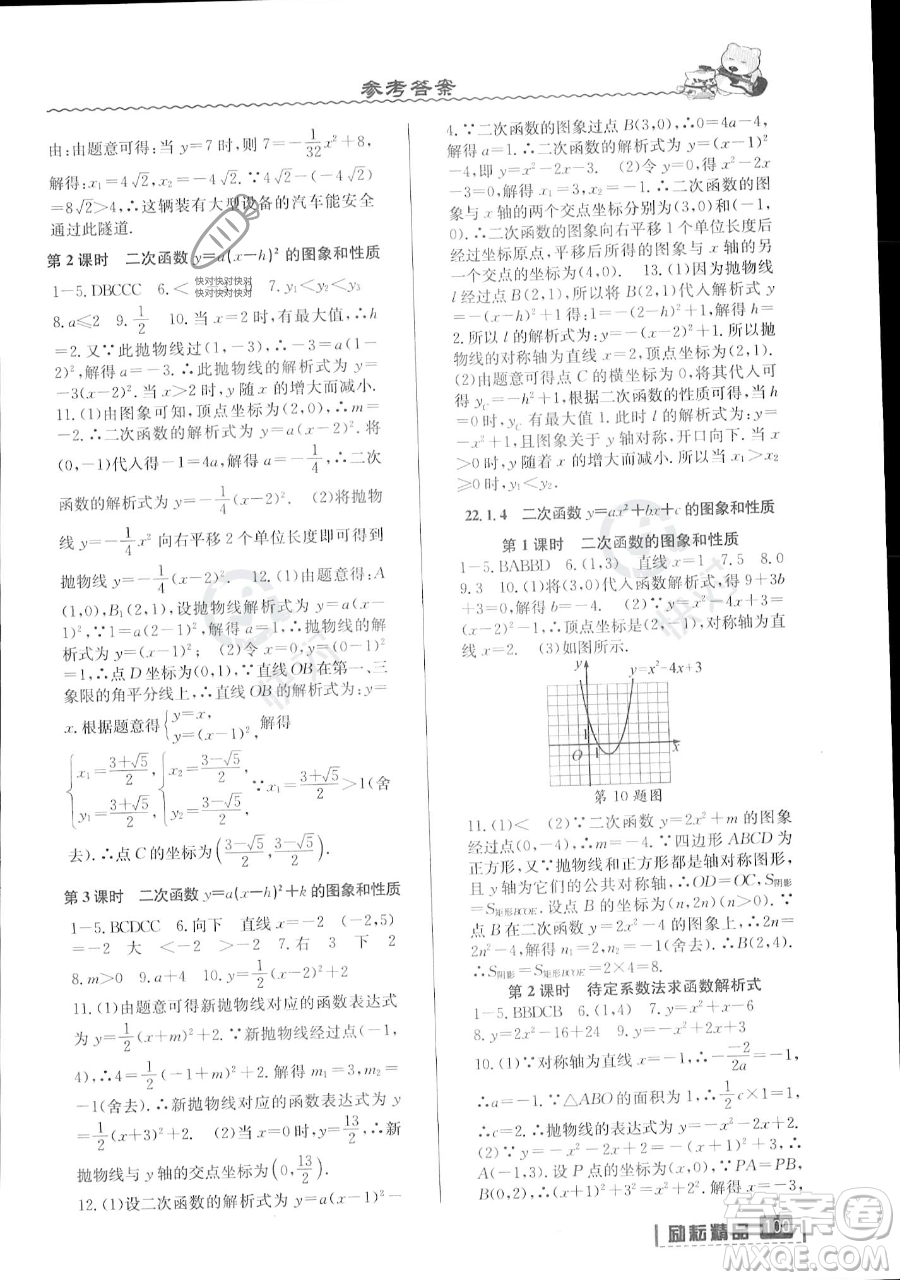 参考答案
由:由题意可得:当 y=7 时,则 7=-1/32x²+8,
解得:x₁=4√2,x₂=-4√2.∵4√2-(-4√2)=
8√2>4,∴这辆装有大型设备的汽车能安全
通过此隧道.
第 2 课时 二次函数 y=a(x-h)² 的图象和性质
1-5.DBCCC 6.< 7.y₁<y₂<y₃
快对快对快对
快对快对快对
8.a≤2 9.1/2 10.当 x=2 时,有最大值,∴h
=2.又∵此抛物线过(1,-3),∴抛物线的解
析式为 y=
-3(x-2)².当 x>2 时,y 随 x 的增大而减小.
11.(1)由图象可知,顶点坐标为(2,0),∴m=
-2.∴二次函数的解析式为 y=a(x-2)².将
(0,-1)代入得-1=4a,∴a=-1/4,∴二次
函数的解析式为 y=-1/4(x-2)². (2)将抛物
线 y=-1/4x² 向右平移 2 个单位长度即可得到
抛物线 y=-1/4(x-2)². 12.(1)由题意得:A
(1,0),B₁(2,1),设抛物线解析式为 y=a(x-
1)²,∵抛物线经过点 B₁,解得 a=1,∴抛物线的解
析式为 y=(x-1)². (2)令 x=0,y=(0-1)²
=1,∴点 D 坐标为(0,1).∵直线 OB 在第一、三
象限的角平分线上,∴直线 OB 的解析式为 y=
x.根据题意得{y=x, y=(x-1)²,解得
{x₁=(3+√5)/2, y₁=(3+√5)/2, {x₂=(3-√5)/2, y₂=(3-√5)/2. ∵x₁=(3+√5)/2>1(舍
去).∴点 C 的坐标为((3-√5)/2,(3-√5)/2).
第 3 课时 二次函数 y=a(x-h)²+k 的图象和性质
1-5.BCDCC 6.向下 直线 x=-2 (-2,5)
=-2 大 <-2 >-2 7.右 3 下 2
8.m>0 9.x<2 10.y=1/2(x-2)²+2
11.(1)由题意可得新抛物线对应的函数表达式
为 y=1/2(x+m)²+2.∵新抛物线经过点(-1,
4),∴4=1/2(-1+m)²+2.解得 m₁=3,m₂=
-1(舍去).∴新抛物线对应的函数表达式为 y=
1/2(x+3)²+2. (2)当 x=0 时,y=13/2,∴新
抛物线与 y 轴的交点坐标为(0,13/2).
12.(1)设二次函数的解析式为 y=a(x-1)²-
4.∵二次函数的图象过点 B(3,0),∴0=4a-4,
解得 a=1.∴二次函数的解析式为 y=(x-1)²
-4. (2)令 y=0,得
x²-2x-3=0.解方程,得 x₁=3,x₂=-1.∴二次函数的图
象与 x 轴的两个交点坐标分别为(3,0)和(-1,
0).∴二次函数的图象向右平移 1 个单位长度后
经过坐标原点,平移后所得的图象与 x 轴的另
一个交点坐标为(4,0). 13.(1)∵抛物线
l 经过点 B(2,1),所以把 B(2,1)代入解析式 y=
-(x-h)²+1 得:1=-(2-h)²+1,解得:h=
2.所以 l 的解析式为:y=-(x-2)²+1.∴抛
物线的对称轴为直线 x=2,顶点坐标为(2,1).
(2)由题意可得点 C 的横坐标为 0,则点 C 的纵坐标为
y_C=-h²+1,根据二次函数的性质可得,当 h=0
时,y_C 有最大值 1.此时 l 的解析式为:y=-x²+1,
且图象关于 y 轴对称,开口向下.当 x>0
时,y 随着 x 的增大而减小.∴当 x₁>x₂
≥0时,y₁<y₂.
22.1.4 二次函数 y=ax²+bx+c 的图象和性质
第 1 课时 二次函数的图象和性质
1-5.BABBD 6.(1,3) 直线 x=1 7.5 8.0
9.3 10.(1)将(3,0)代入函数解析式,得 9-12
+c=0,解得 c=3. (2)∵y=x²-4x+3=
(x-2)²-1,∴顶点坐标是(2,-1),对称轴为直
线 x=2. (3)如图所示.
y
y=x²-4x+3
1
O
1
x
第 10 题图
11.(1)< (2)∵二次函数 y=2x²+m 的图象
经过点(0,-4),∴m=-4.∵四边形 ABCD 为
正方形,又∵抛物线和正方形都是轴对称图形,且 y
轴为它们的公共对称轴,∴OD=OC,S阴影
=S矩形BCOE.设点 B 的坐标为(n,2n)(n>0),
∵点 B 在二次函数 y=2x²-4 的图象上,∴2n=
2n²-4.解得 n₁=2,n₂=-1(舍去).∴B(2,4).
∴S阴影=S矩形BCOE=2×4=8.
第 2 课时 待定系数法求函数解析式
1-5.BBDCB 6.(1,4) 7.y=-x²+2x+3
8.y=2x²-16+24 9.y=-x²-2x
10.(1)∵对称轴为直线 x=-1,∴-(-2)/2a=-1,
∴a=-1.∵△ABO 的面积为 1,∴1/2c×1=1,
∴c=2.∴抛物线的表达式为 y=-x²-2x+2.
(2)∵y=-x²-2x+2=-(x+1)²+3,∴
A(-1,3).设 P 点的坐标为
励耘精品
答案圈